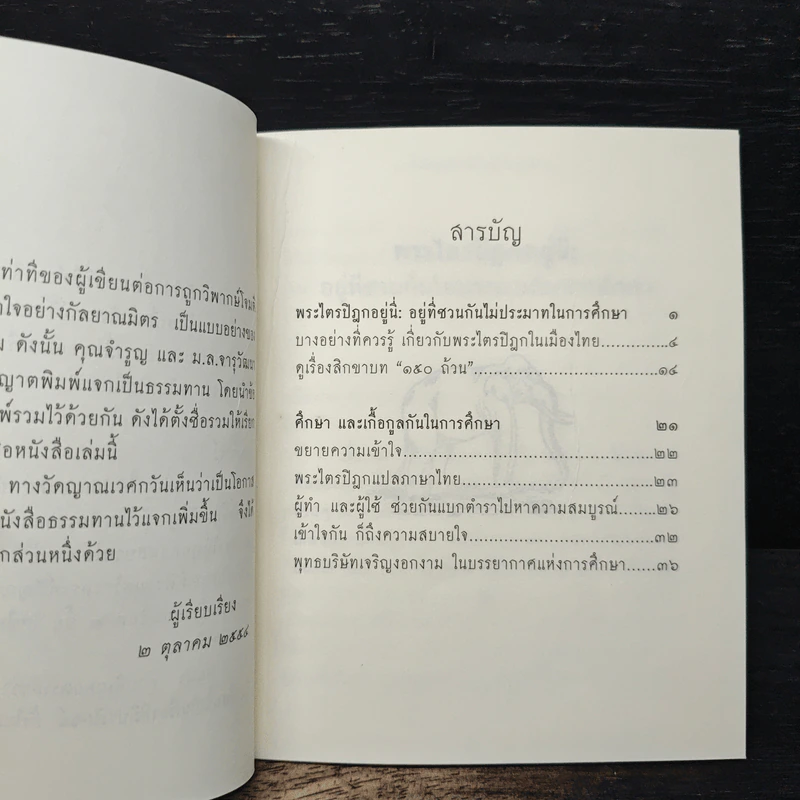 ท่าทีของผู้เขียนต่อการถูกวิพากษ์โจมตี
อย่างกัลยาณมิตร เป็นแบบอย่างของ
ดังนั้น คุณจำรูญ และ ม.ล.จารุวัฒนา
พิมพ์แจกเป็นธรรมทาน โดยนำข้อ
รวมไว้ด้วยกัน ดังได้ตั้งชื่อรวมให้เรียก
หนังสือเล่มนี้
ทางวัดญาณเวศกวันเห็นว่าเป็นโอกาส
หนังสือธรรมทานไว้แจกเพิ่มขึ้น จึงได้
ส่วนหนึ่งด้วย
ผู้เรียบเรียง
๒ ตุลาคม
สารบัญ
พระไตรปิฎกอยู่นี่: อยู่ที่ชวนกันไม่ประมาทในการศึกษา ๑
บางอย่างที่ควรรู้ เกี่ยวกับพระไตรปิฎกในเมืองไทย.....๔
ดูเรื่องสิกขาบท “๑๕๐ ถ้วน”.....๑๔
ศึกษา และเกื้อกูลกันในการศึกษา ๒๑
ขยายความเข้าใจ.....๒๒
พระไตรปิฎกแปลภาษาไทย.....๒๓
ผู้ทำ และผู้ใช้ ช่วยกันแบกตำราไปหาความสมบูรณ์.....๒๖
เข้าใจกัน ก็ถึงความสบายใจ.....๓๒
พุทธบริษัทเจริญงอกงาม ในบรรยากาศแห่งการศึกษา.....๓๖